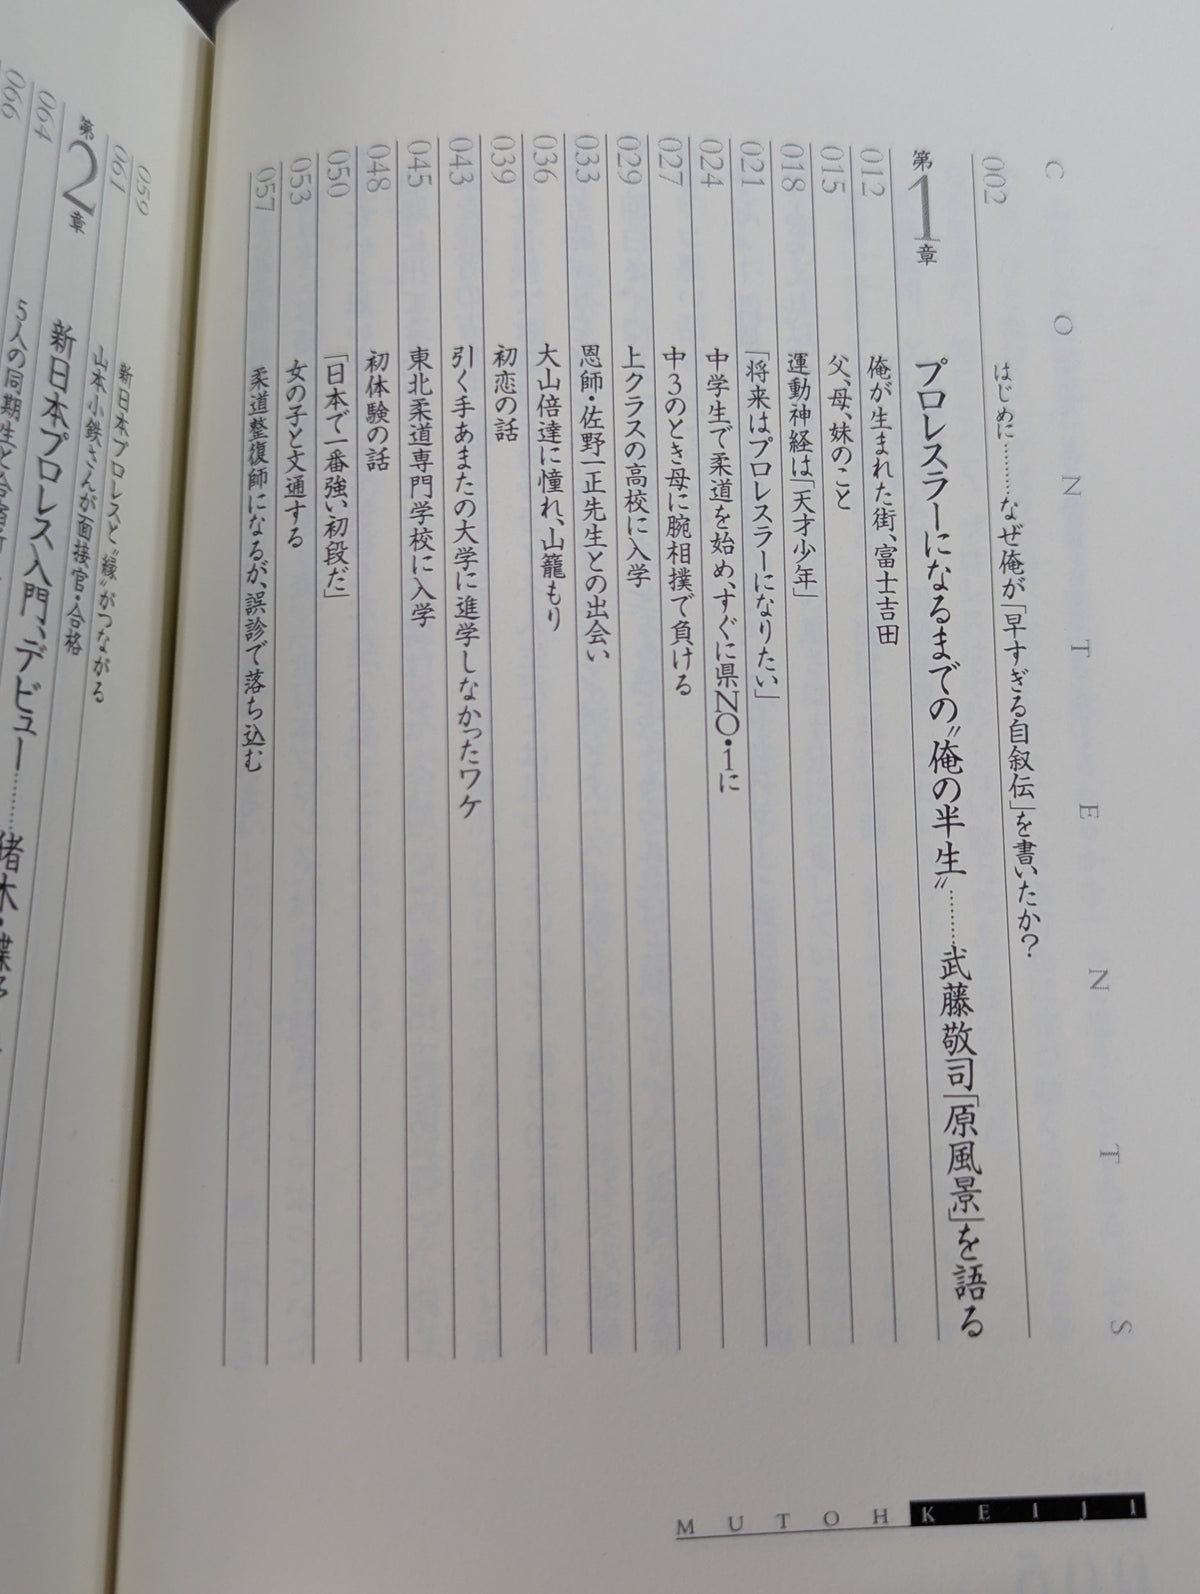 CONTENTS
002 はじめに………なぜ俺が「早すぎる自叙伝」を書いたか?
第1章 プロレスラーになるまでの〝俺の半生〟………武藤敬司「原風景」を語る
012 俺が生まれた街、富士吉田
015 父、母、妹のこと
018 運動神経は「天才少年」
021 「将来はプロレスラーになりたい」
024 中学生で柔道を始め、すぐに県NO・1に
027 中3のとき母に腕相撲で負ける
029 上クラスの高校に入学
033 恩師・佐野一正先生との出会い
036 大山倍達に憧れ、山籠もり
039 初恋の話
043 引く手あまたの大学に進学しなかったワケ
045 東北柔道専門学校に入学
048 初体験の話
050 「日本で一番強い初段だ」
053 女の子と文通する
057 柔道整復師になるが、誤診で落ち込む
MUTOH KEIJI
059 新日本プロレスと〝縁〟がつながる
061 山本小鉄さんが面接官・合格
第2章 新日本プロレス入門、デビュー………猪木・蝶
064
066 5人の同期生と合宿所